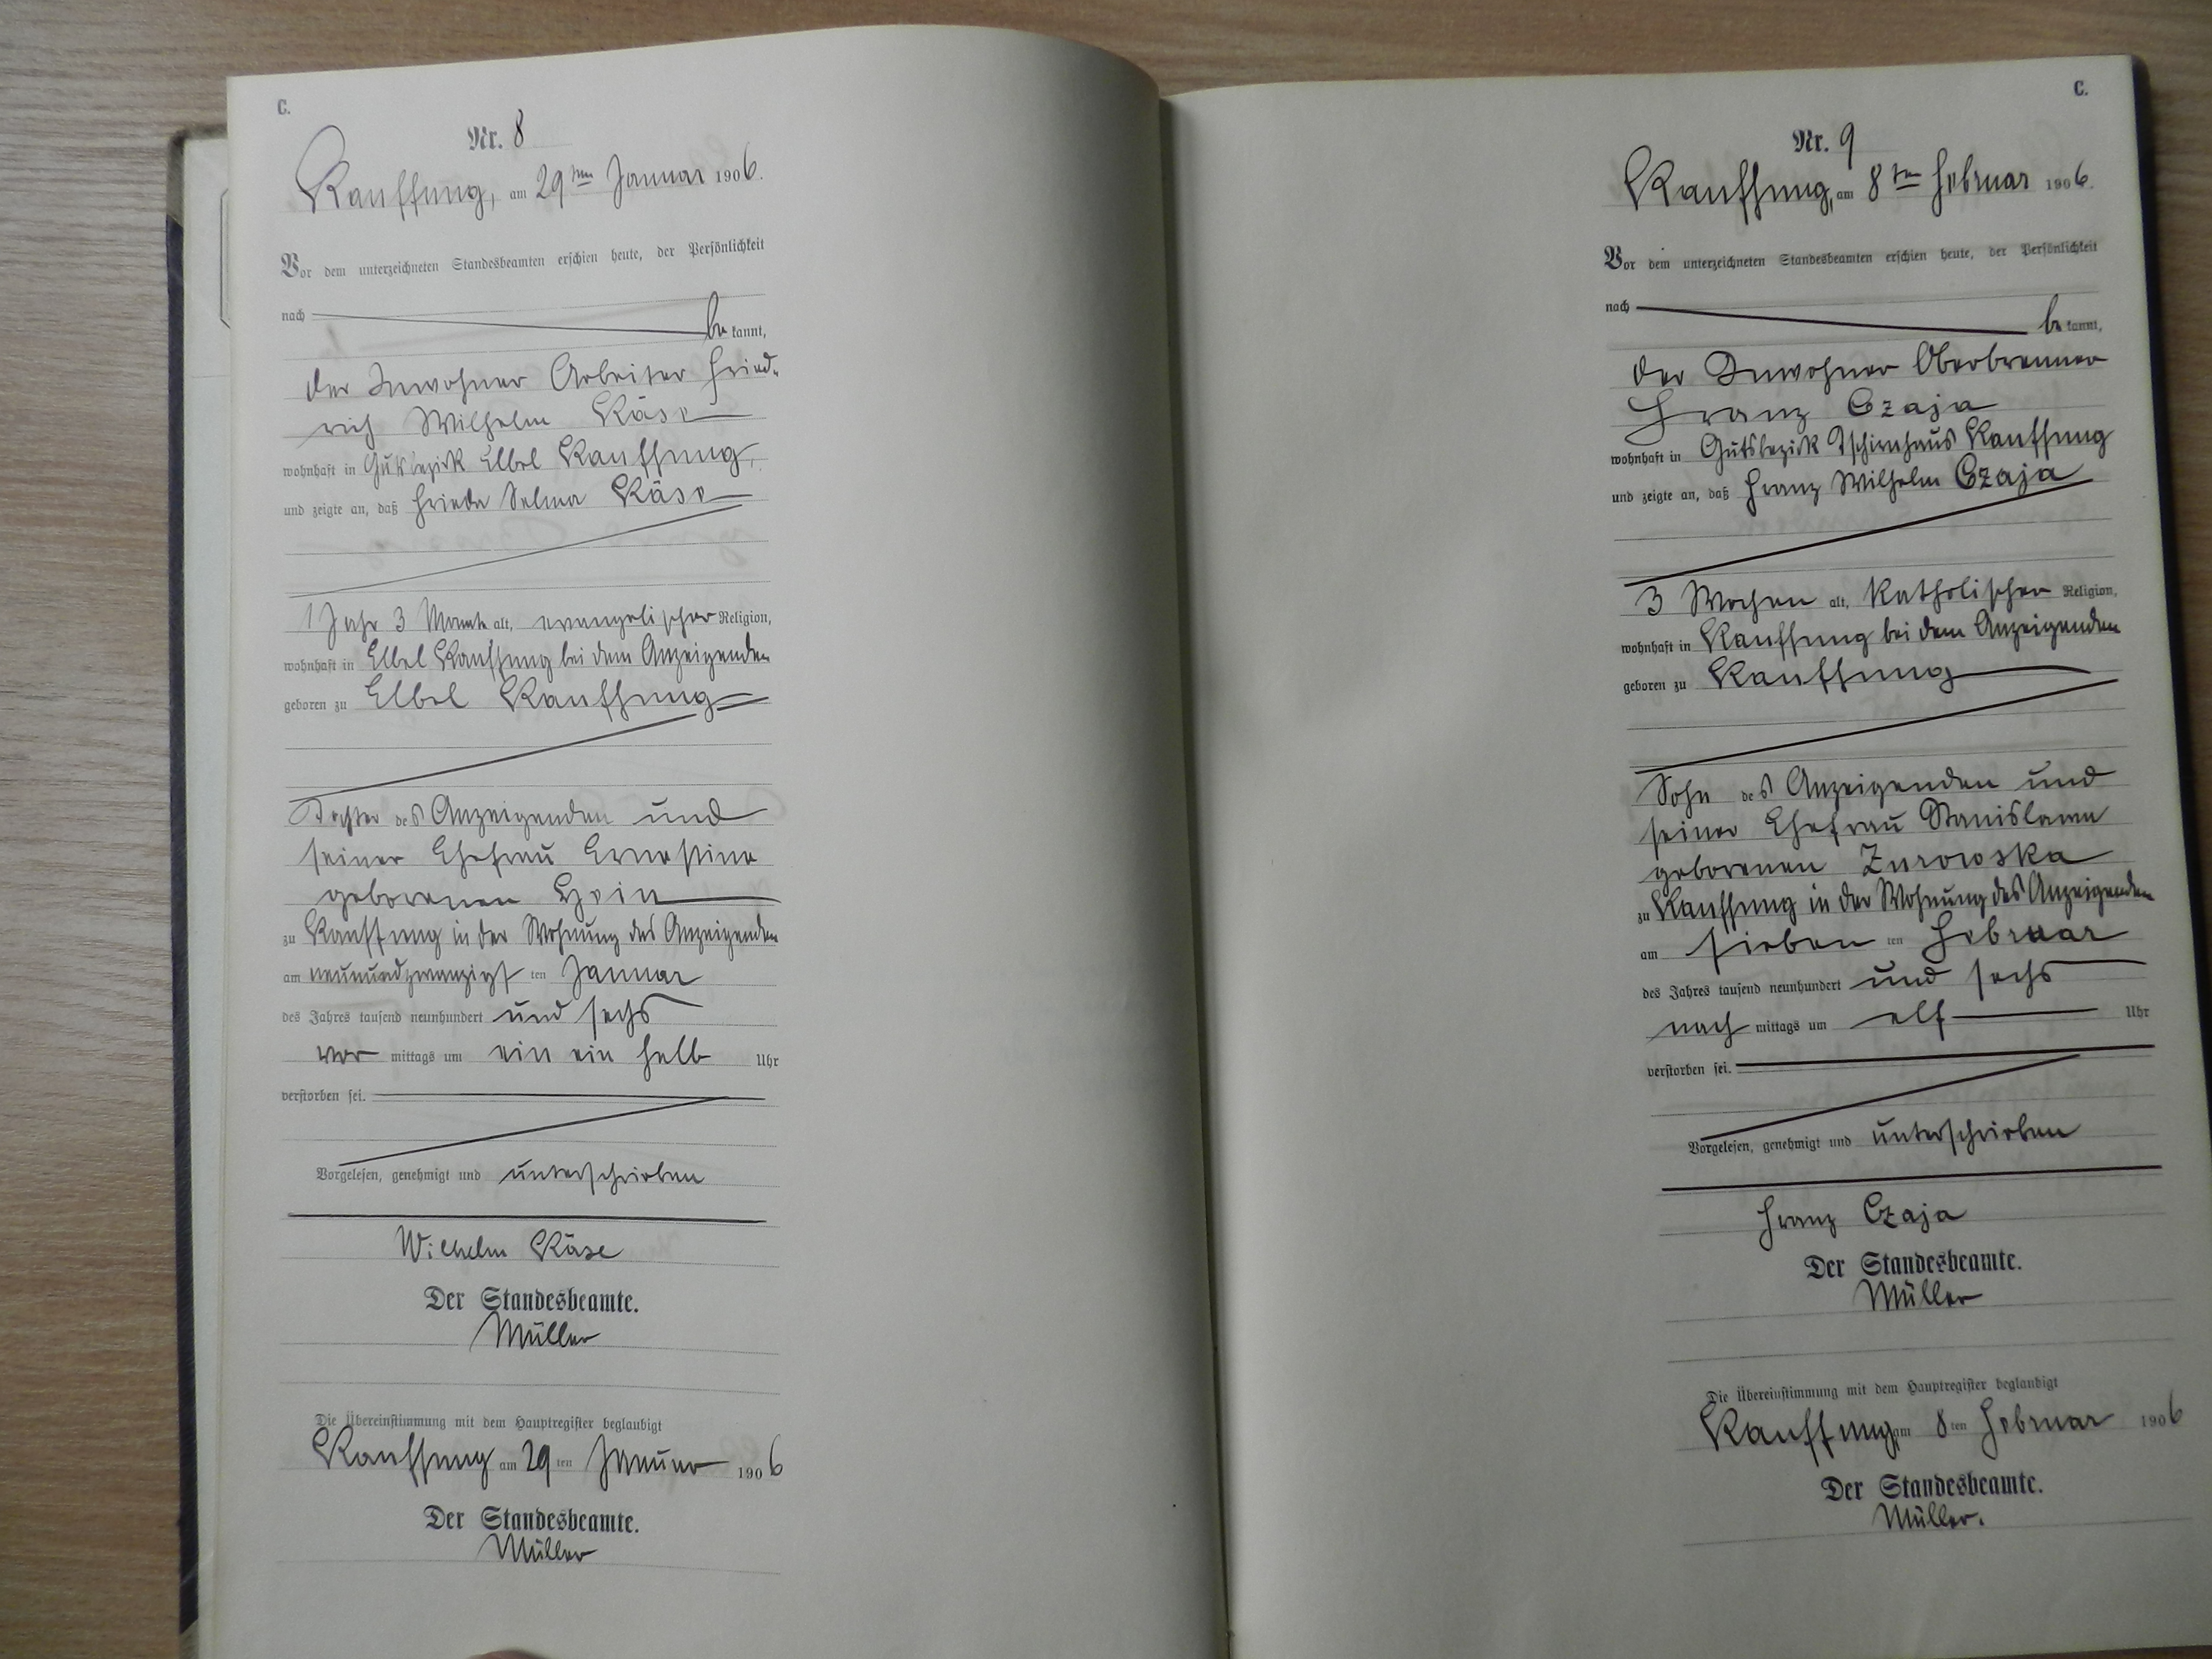 C.
Nr. 8
Kauffung, am 29ten Januar 1906.
Vor dem unterzeichneten Standesbeamten erschien heute, der Persönlichkeit
nach be kannt,
der Inwohner Arbeiter Fried-
rich Wilhelm Käse
wohnhaft in Gutsbezirk Elbel Kauffung,
und zeigte an, daß Frieda Selma Käse
1 Jahr 3 Monate alt, evangelischer Religion,
wohnhaft in Elbel Kauffung bei dem Anzeigenden
geboren zu Elbel Kauffung
Tochter des Anzeigenden und
seiner Ehefrau Ernestine
geborenen
zu Kauffung in der Wohnung des Anzeigenden
am neunundzwanzigst ten Januar
des Jahres tausend neunhundert und sechs
vor mittags um ein ein halb Uhr
verstorben sei.
Vorgelesen, genehmigt und unterschrieben
Wilhelm Käse
Der Standesbeamte.
Müller
Die Übereinstimmung mit dem Hauptregister beglaubigt
Kauffung am 29 ten Januar 1906
Der Standesbeamte.
Müller
C.
Nr. 9
Kauffung, am 8ten Februar 1906.
Vor dem unterzeichneten Standesbeamten erschien heute, der Persönlichkeit
nach be kannt,
der Inwohner Oberbrenner
Franz Czaja
wohnhaft in Gutsbezirk Tschirnhaus Kauffung
und zeigte an, daß Franz Wilhelm Czaja
3 Wochen alt, katholischer Religion,
wohnhaft in Kauffung bei dem Anzeigenden
geboren zu Kauffung
Sohn des Anzeigenden und
seiner Ehefrau Stanislawa
geborenen Zurowska
zu Kauffung in der Wohnung des Anzeigenden
am sieben ten Februar
des Jahres tausend neunhundert und sechs
nach mittags um elf Uhr
verstorben sei.
Vorgelesen, genehmigt und unterschrieben
Franz Czaja
Der Standesbeamte.
Müller
Die Übereinstimmung mit dem Hauptregister beglaubigt
Kauffung am 8 ten Februar 1906
Der Standesbeamte.
Müller.